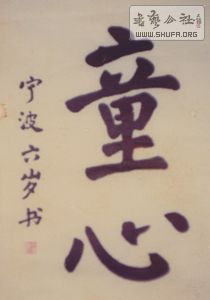 童心
宁波六岁书
书艺公社
WWW.SHUFA.ORG